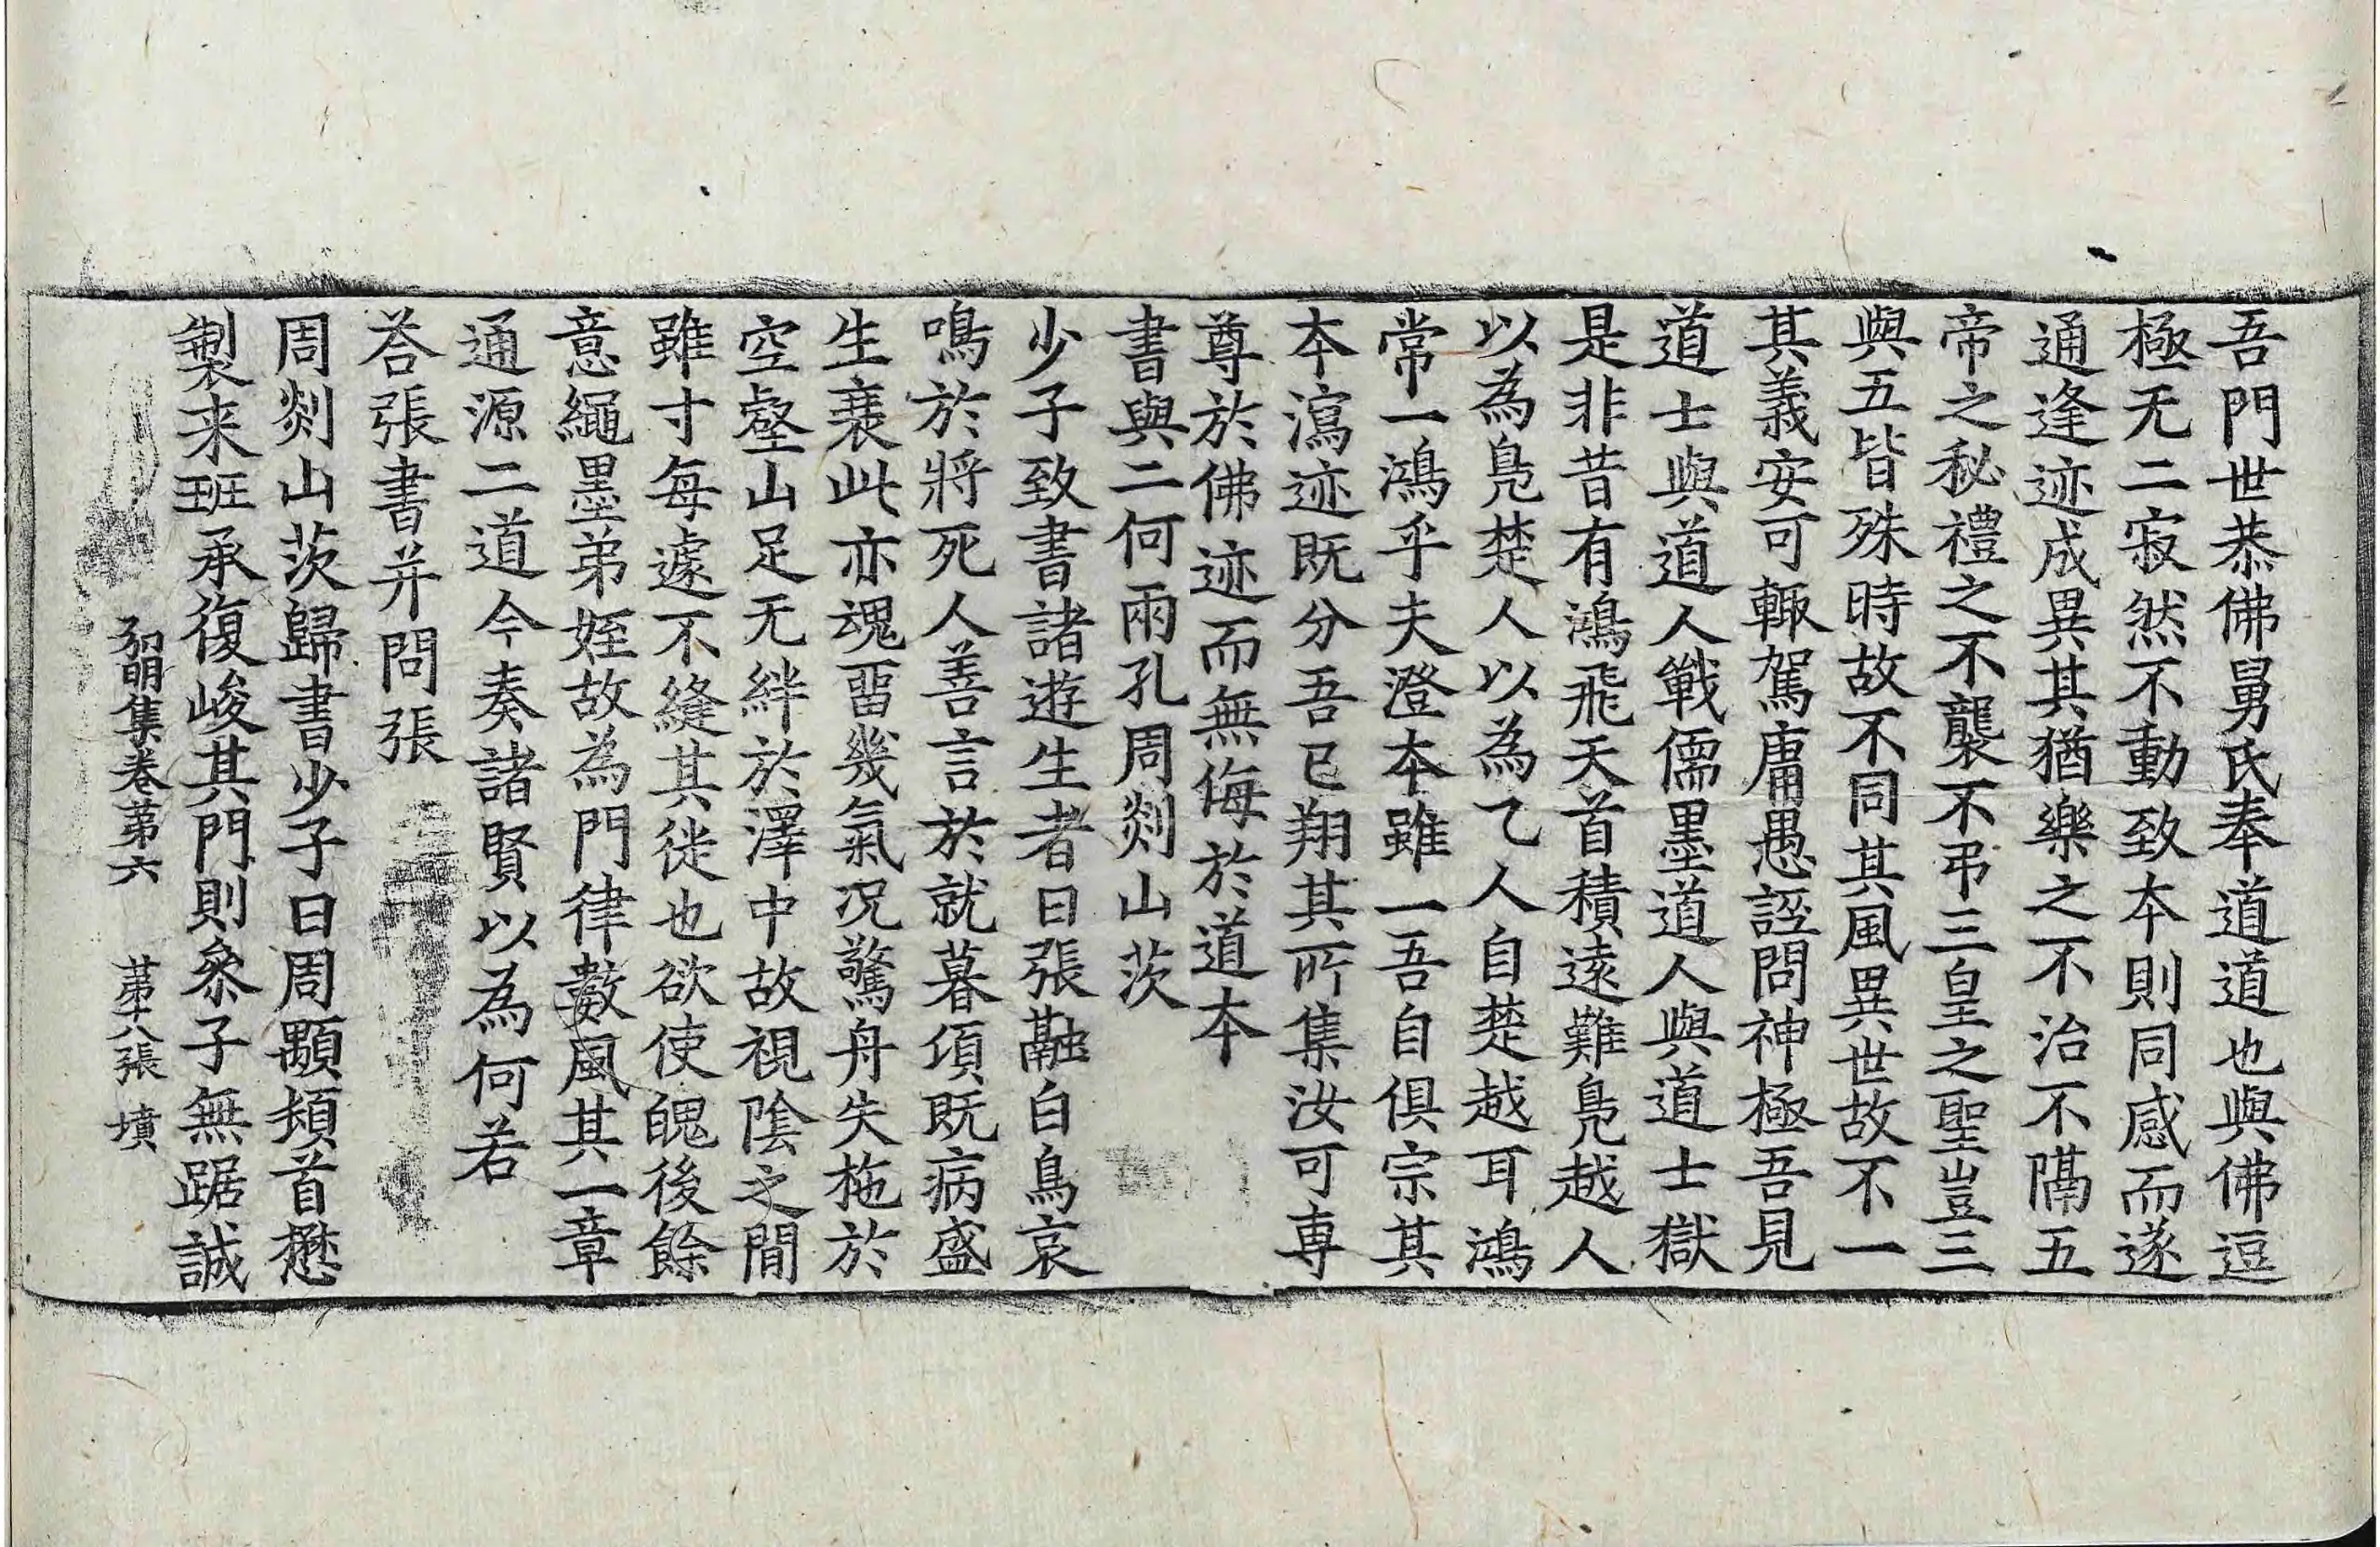 吾門世恭佛舅氏奉道道也與佛逗
極无二寂然不動致本則同感而遂
通逢迹成異其猶樂之不治不隔五
帝之秘禮之不襲不弔三皇之聖豈三
與五皆殊時故不同其風異世故不一
其義安可輙駕庸愚誣問神極吾見
道士與道人戰儒墨道人與道士獄
是非昔有鴻飛天首積遠難鳧越人
以為鳧楚人以為乙人自楚越耳鴻
常一鴻乎夫澄本雖一吾自俱宗其
本瀉迹既分吾已翔其所集汝可專
尊於佛迹而無侮於道本
書與二何兩孔周剡山茨
少子致書諸遊生者曰張融白鳥哀
鳴於將死人善言於就暮頃既病盛
生衰此亦魂留幾氣况驚舟失柂於
空壑山足无絆於澤中故視陰之間
雖寸每遽不縫其徙也欲使魄後餘
意繩墨弟姪故為門律數風其一章
通源二道今奏諸賢以為何若
荅張書并問張
周剡山茨歸書少子曰周顒頓首懋
製来班承復峻其門則叅子無踞誠
弘明集卷第六 第十八張 墳